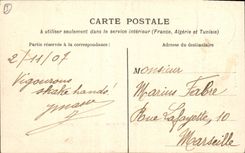 CARTE POSTALE
à utiliser seulement dans le service intérieur (France, Algérie et Tunisie)
Partie réservée à la correspondance
Adresse du destinataire
2/11/07
Vigourous
shake hands!
Monsieur
Marius Fabre
Rue Lafayette, 10
Marseille